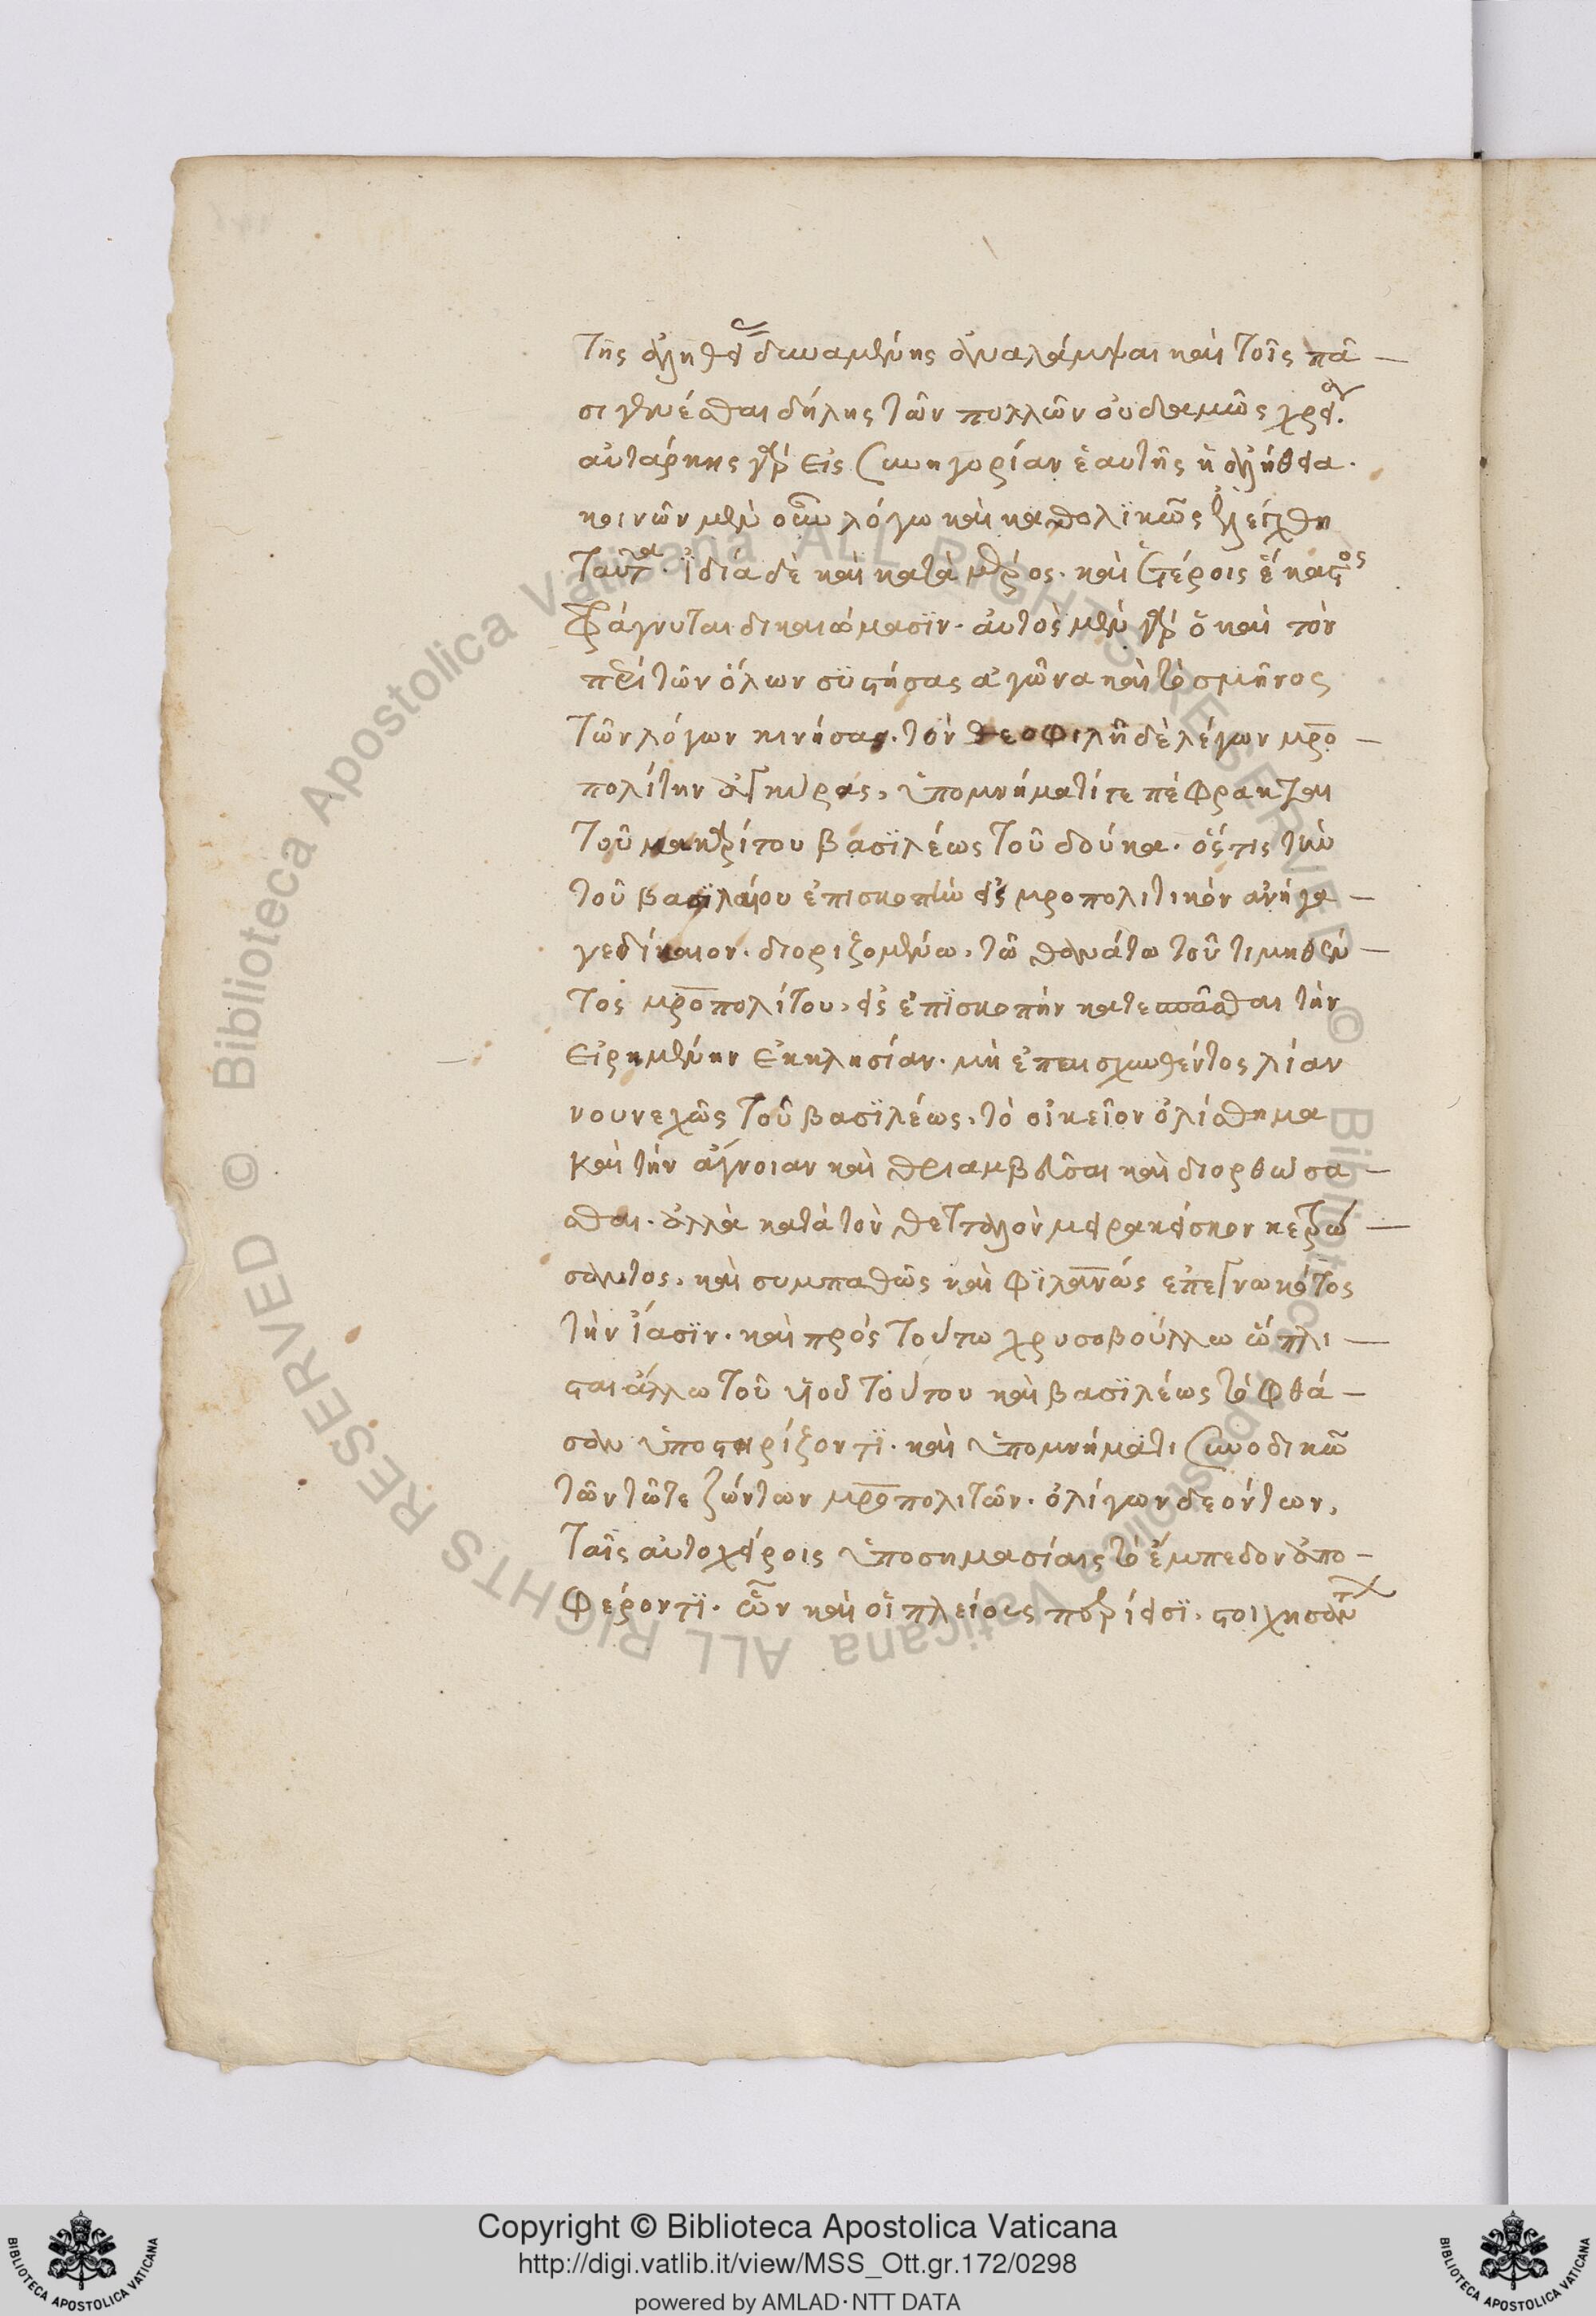 τῆς ἀληθείας δυναμένης ἀναλάμψαι καὶ τοῖς πᾶ-
σι γενέσθαι δήλης τῶν πολλῶν οὐδαμῶς χρεία.
αὐτάρκης γὰρ εἰς συνηγορίαν ἑαυτῆς ἡ ἀλήθεια.
κοινῶν μὲν οὖν λόγω καὶ καθολϊκῶς ἐλέχθη
ταῦτα. ἰδία δὲ καὶ κατὰ μέρος. καὶ ἑτέροις ἕκαστος
φράγνυται δικαιώμασϊν. αὐτὸς μὲν γὰρ ὁ καὶ τὸν
περὶ τῶν ὅλων συστήσας ἀγῶνα καὶ τὸ σμῆνος
τῶν λόγων κινήσας. τὸν θεοφιλῆ δὲ λέγων μρο-
πολίτην ἀγκύρας, ὑπομνήματί τε πέφρακται
τοῦ μακαρίτου βασϊλέως τοῦ δούκα. ὅς τις τὴν
τοῦ βασϊλαίου ἐπισκοπὴν εἰς μροπολιτικὸν ἀνήγα-
γε δίκαιον. διοριζομένω, τῶ θανάτω τοῦ τιμηθέν-
τος μροπολίτου, εἰς ἐπϊσκοπὴν κατασπᾶσθαι τὴν
εἰρημένην ἐκκλησίαν. μὴ ἐπαισχυνθέντος λίαν
νουνεχῶς τοῦ βασϊλέως, τὸ οἰκεῖον ὀλίσθημα
καὶ τὴν ἄγνοιαν καὶ θριαμβεῦσαι καὶ διορθώσα-
σθαι. ἀλλὰ κατὰ τὸν θετταλὸν μειρακείσκον κετρώ-
σαντος, καὶ συμπαθῶς καὶ φϊλανως ἐπεγνωκότος
τὴν ἴασϊν. καὶ πρὸς τούτω χρυσοβούλλω ὥπλι-
σται ἄλλω τοῦ υἱοῦ τούτου καὶ βασϊλέως τὸ φθά-
σαν ὑποστηρίζοντϊ. καὶ ὑπομνήματι συνοδικῶ
τῶν τῶτε ζώντων μροπολιτῶν. ὀλίγων δεόντων,
ταῖς αὐτοχείροις ὑποσημασίαις τὸ ἔμπεδον ἀπο-
φέροντϊ. ὧν καὶ οἱ πλείους περίεισϊ. στοιχήσαντες